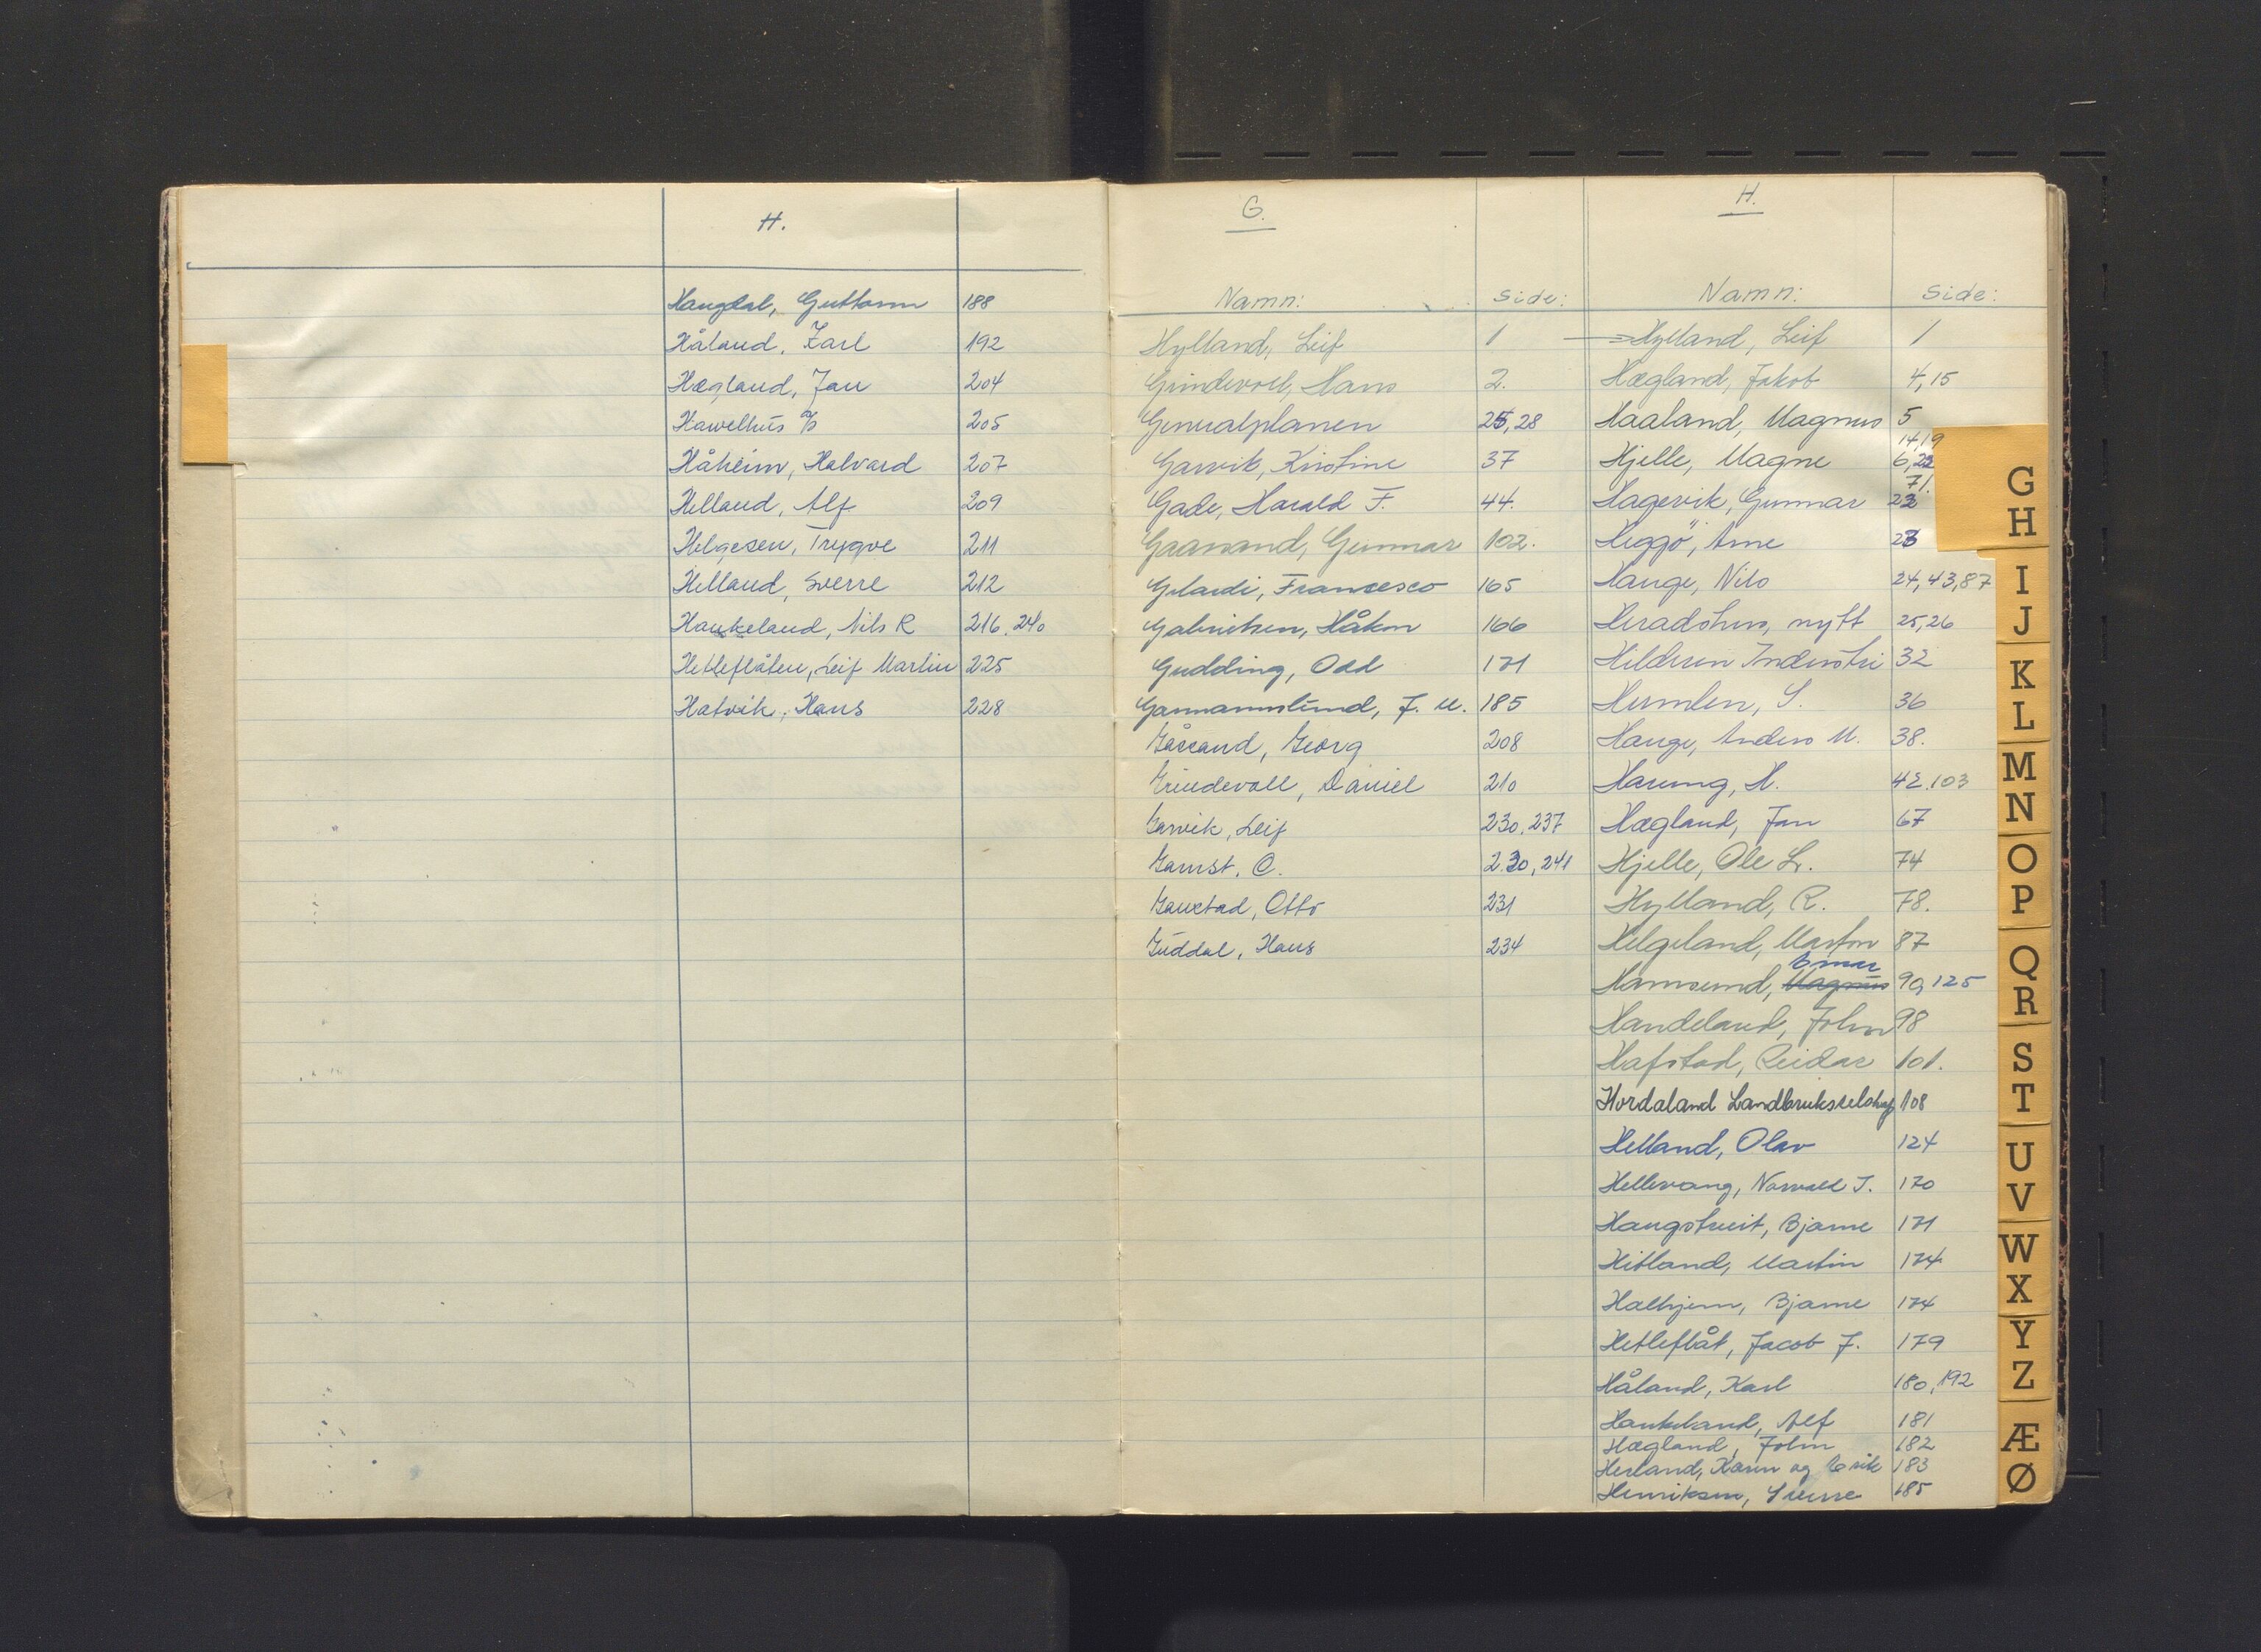 H.
Haugdal, Guttorm 188
Håland, Karl 192
Hægland, Jan 204
Hawelhus A/S 205
Håheim, Halvard 207
Helland, Alf 209
Helgesen, Trygve 211
Helland, Sverre 212
Haukeland, Nils R 216, 240
Hetleflåten, Leif Martin 225
Hatvik, Hans 228
G.
Namn: Side:
Hylland, Leif 1
Grindevoll, Hans 2.
Generalplanen 25, 28
Garvik, Kristine 37
Gade, Harald F. 44.
Gaassand, Gunnar 102.
Gelardi, Francesco 165
Gabrielsen, Håkon 166
Gudding, Odd 171
Gammelslund, J. M. 185
Gåssand, Georg 208
Grindevoll, Daniel 210
Garvik, Leif 230, 237
Garnst, O. 230, 241
Gaustad, Otto 231
Guddal, Hans 234
H.
Namn: Side:
Hylland, Leif 1
Hægland, Jakob 4, 15
Haaland, Magnus 5
14, 19
Hjelle, Magne 6, 22
71.
Hagevik, Gunnar 22
Heggö, Arne 23
Hauge, Nils 24, 43, 87
Heradshus, nytt 25, 26
Hildeen Industri 32
Humlen, S. 36
Hauge, Anders M. 38.
Harung, H. 42, 103
Hægland, Jan 67
Hjelle, Ole L. 74
Hylland, R. 78.
Helgeland, Marton 87
Einar
Hamsund, Magnus 90, 125
Handeland, Johan 98
Hafstad, Reidar 101.
Hordaland Landbruksselskap 108
Helland, Olav 124
Hellevang, Norvald J. 170
Haugstveit, Bjarne 171
Hitland, Martin 174
Halhjem, Bjarne 174
Hetleflåt, Jacob J. 179
Håland, Karl 180, 192
Haukeland, Alf 181
Hægland, John 182
Herland, Karin og Erik 183
Henriksen, Sverre 185
G
H
I
J
K
L
M
N
O
P
Q
R
S
T
U
V
W
X
Y
Z
Æ
Ø